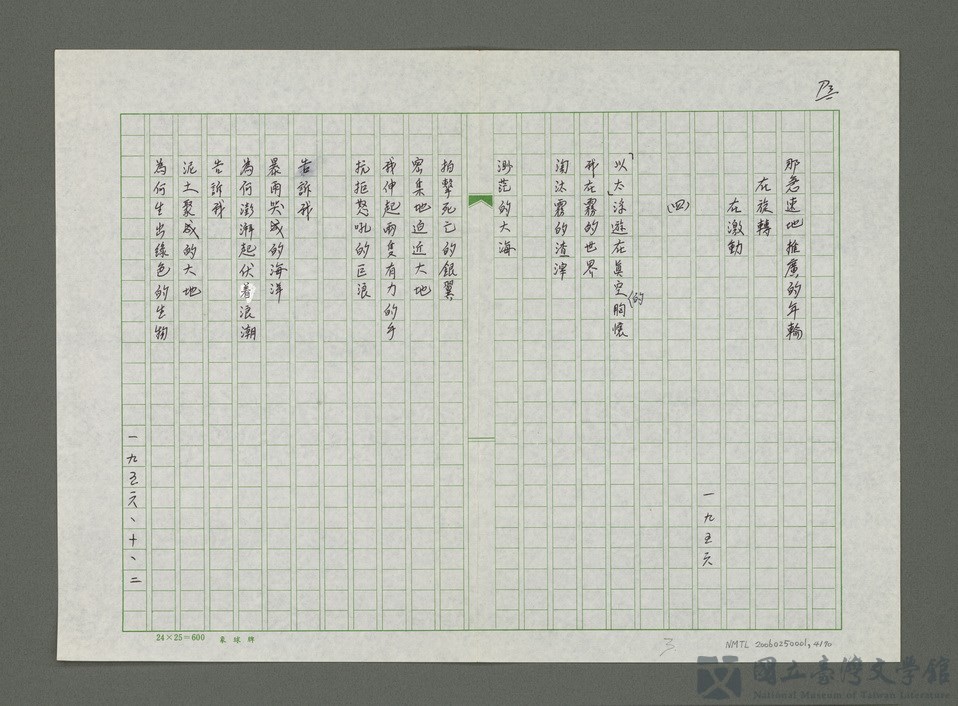 P3
那急速地推廣的年輪
在旋轉
在激動
一九五六
(四)
「以太」浮遊在真空的胸懷
我在霧的世界
淘汰霧的渣滓
渺茫的大海
拍擊死亡的銀翼
密集地迫近大地
我伸起兩隻有力的手
抗拒怒吼的巨浪
告訴我
暴雨哭成的海洋
為何澎湃起伏着浪潮
告訴我
泥土聚成的大地
為何生出綠色的生物
一九五六、十、二
24×25=600
球牌
3
NMTL 20060250001, 4170
國立臺灣文學館
National Museum of Taiwan Literature